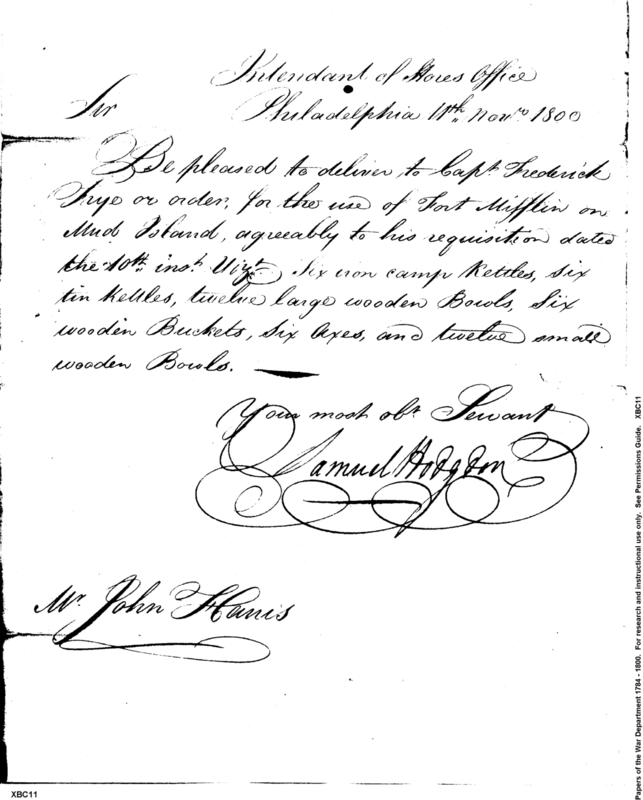 Intendant of Stores Office
Philadelphia 11th Novr 1800
Sir
Be pleased to deliver to Capt Frederick
Frye or order, for the use of Fort Mifflin on
Mud Island, agreeably to his requisition dated
the 10th inst Vizt. Six iron camp Kettles, six
tin Kettles, twelve large wooden Bowls, Six
wooden Buckets, Six Axes, and twelve small
wooden Bowls.
Your most obt Servant
Samuel Hodgdon
Mr. John Harris
XBC11
Papers of the War Department 1784 - 1800. For research and instructional use only. See Permissions Guide. XBC11